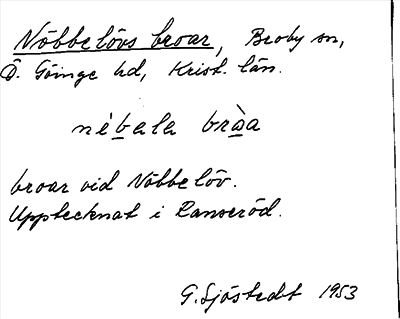 Nöbbelövs broar, Broby sn,
Ö. Göinge hd, Krist. län.
nèbala bràa
broar vid Nöbbelöv.
Upptecknat i Ranseröd.
G. Sjöstedt 1953